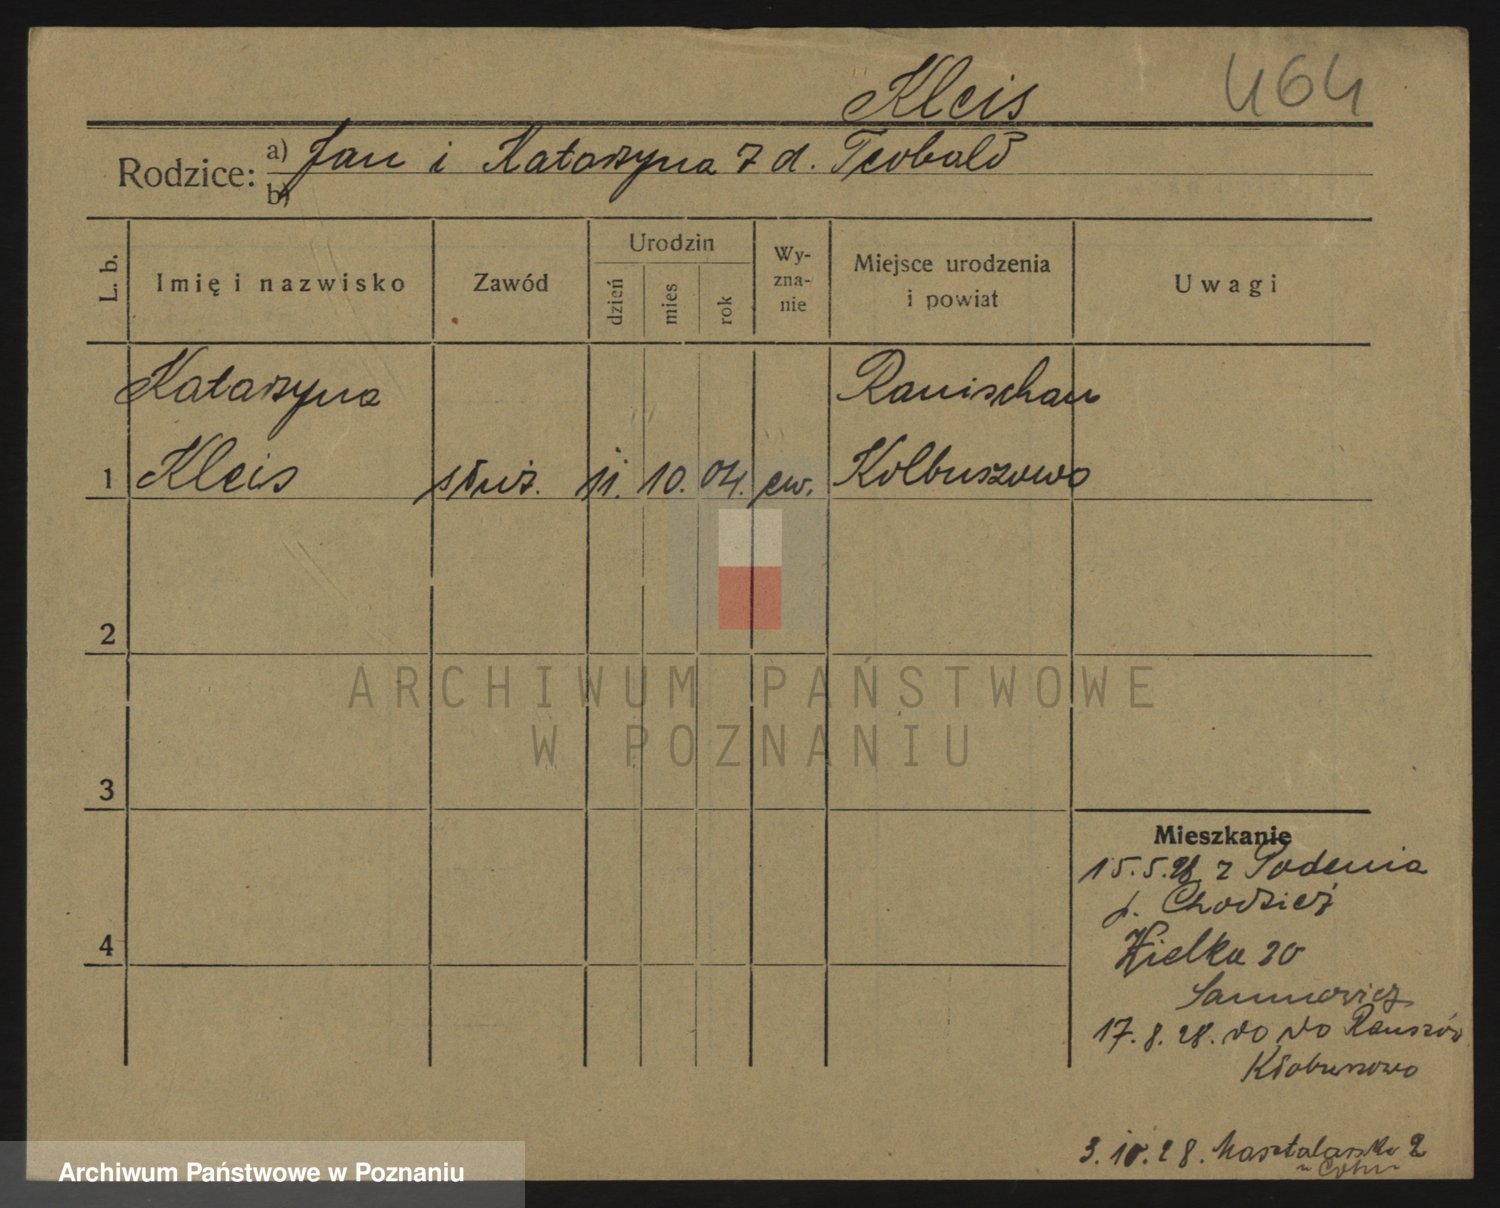 464
Kleis
Rodzice: a) Jan i Katarzyna z d. Teobald
b)
L. b.
Imię i nazwisko
Zawód
Urodzin
dzień
mies
rok
Wy-
zna-
nie
Miejsce urodzenia
i powiat
Uwagi
Katarzyna Ranischau
1 Kleis służ. 11. 10. 04. ew. Kolbuszowa
2
ARCHIWUM PAŃSTWOWE
W POZNANIU
3
Mieszkanie
15.5.28 z Podenia
p. Chodzież
4
Wielka 20
17.8.28. do Raniszów
Kłobuszowo
3.10.28. Masztalarska 2
Archiwum Państwowe w Poznaniu